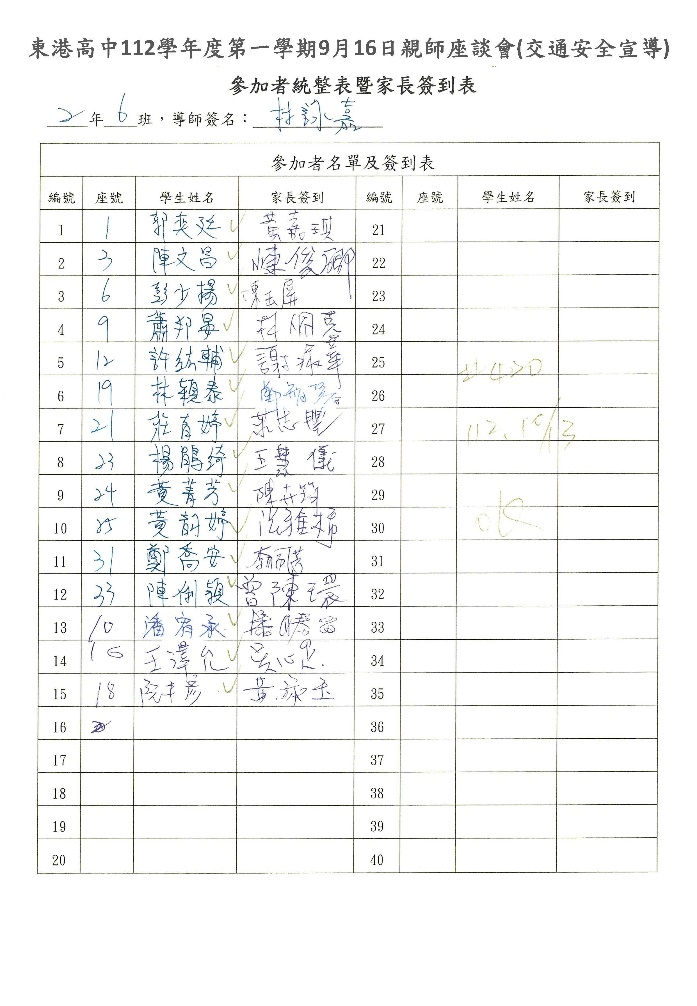 東港高中112學年度第一學期9月16日親師座談會(交通安全宣導)
參加者統整表暨家長簽到表
2年6班，導師簽名：林詠嘉
參加者名單及簽到表
編號 座號 學生姓名 家長簽到 編號 座號 學生姓名 家長簽到
1 1 郭奕廷 黃嘉琪 21
2 3 陳文昌 陳俊 22
3 6 彭少揚 陳玉屏 23
4 9 蕭邦晏 林 24
5 12 許紘輔 謝 25
6 19 林穎泰 26
7 21 莊育婷 27 112.10/13
8 23 楊鵑綺 王 儀 28
9 24 黃菁芳 陳 29
10 25 黃韵婷 30 OK
11 31 鄭喬安 31
12 33 陳俐穎 曾陳玉環 32
13 10 潘宥承 33
14 16 王澤允 34
15 18 阮 彥 黃 玉 35
16 36
17 37
18 38
19 39
20 40